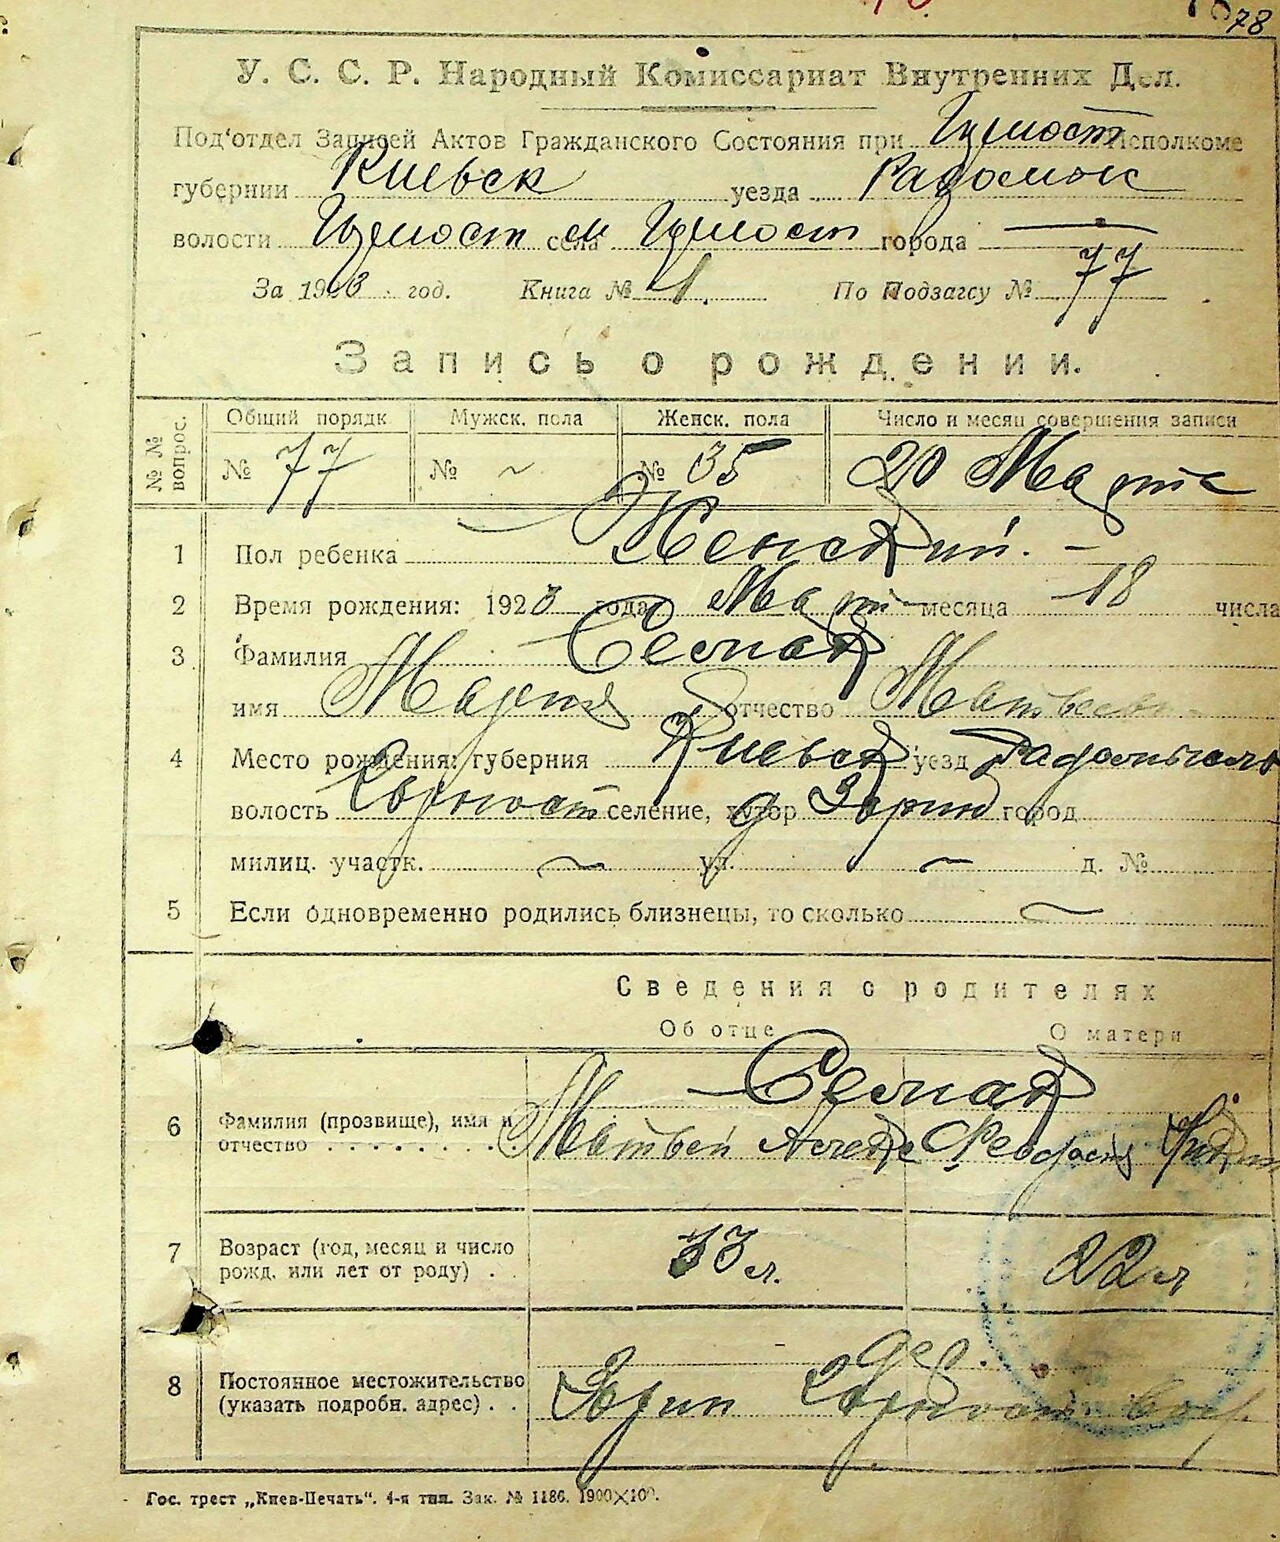 78
У. С. С. Р. Народный Комиссариат Внутренних Дел.
Под'отдел Записей Актов Гражданского Состояния при Исполкоме
губернии Киевск уезда Радомыс
волости села города
За 1923 год. Книга № 1. По Подзагсу № 77
Запись о рождении.
№ № вопрос. Общий порядк Мужск. пола Женск. пола Число и месяц совершения записи
№ 77 № ~ № 35 20 Марта
1 Пол ребенка Женский. –
2 Время рождения: 1923 года Март месяца 18 числа
3 Фамилия Семак
имя Марта отчество Матвеев
4 Место рождения: губерния Киевск уезд
волость селение, хутор д Зорин город
милиц. участк. ~ ул. ~ д. №
5 Если одновременно родились близнецы, то сколько ~
Сведения о родителях
Об отце О матери
Семак
6 Фамилия (прозвище), имя и
отчество Матвей Алекс
7 Возраст (год, месяц и число
рожд. или лет от роду) . 33 л. 22 л
дер.
8 Постоянное местожительство
(указать подробн. адрес) . . Зорин
Гос. трест „Киев-Печать“. 4-я тип. Зак. № 1186. 1900×100.